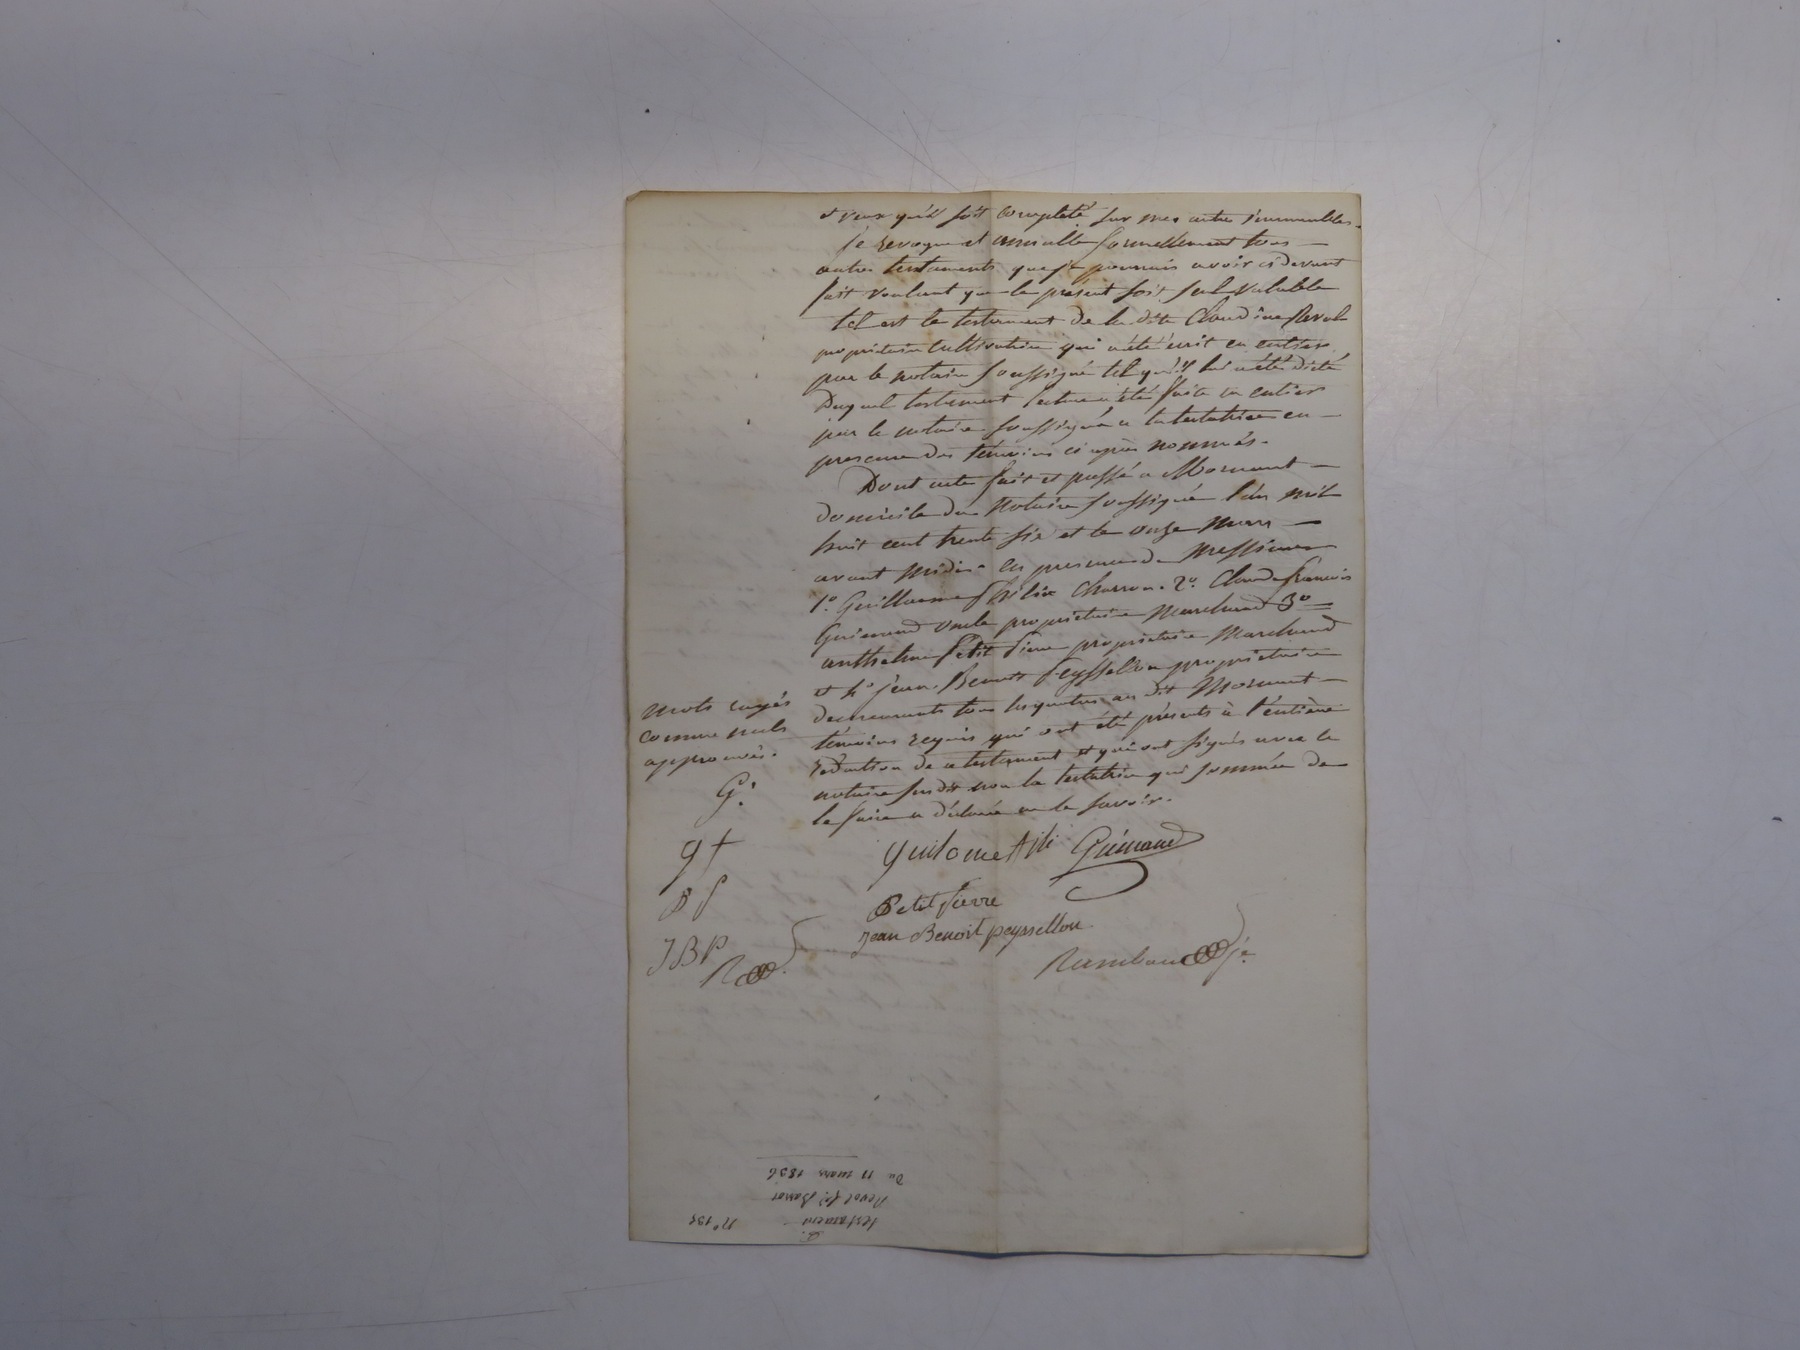 et veux qu'il soit complété sur mes autres immeubles.
je revoque et annulle formellement tous
autres testaments que je pourrais avoir ci devant
fait voulant que le présent soit seul valable
tel est le testament de la dite Claudine Revol
propriétaire cultivatrice qui a été écrit en entier
par le notaire soussigné tel qu'il lui a été dicté
Duquel testament lecture a été faite en entier
par le notaire soussigné a la testatrice en
presence des témoins ci après nommés.
Dont acte fait et passé a Mornant
domicile du notaire soussigné l'an mil
huit cent trente six et le onze mars
avant midi. en presence de messieurs
1.º Guillaume charron. 2.º Claude françois
Guinand oncle propriétaire marchand 3º
anthelme Petit Pierre propriétaire marchand
et 4º jean Benoit Peyssellon propriétaire
demeurants tous les quatre au dit Mornant
témoins requis qui ont été présents à l'entière
rédaction de ce testament et qui ont signés avec le
notaire susdit non la testatrice qui sommée de
le faire a déclaré ne le savoir.
mots rayés
comme nuls
approuvés.
G.
Guinand
Petit Pierre
Jean Benoit peyssellon
J B P
R
Rambaud je
Du 11 mars 1836
Revol
testament
nº 191